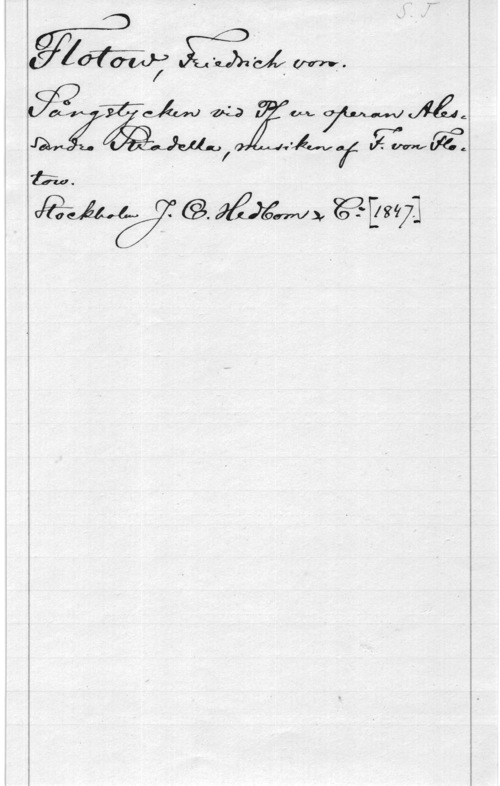 S. J
Flotow, Friedrich von.
Sångstycken vid Pf ur operan Ales-
sandro Stradella, musiken af F. von Flo-
tow.
Stockholm J. C. Hedbom & C:o [1847.]